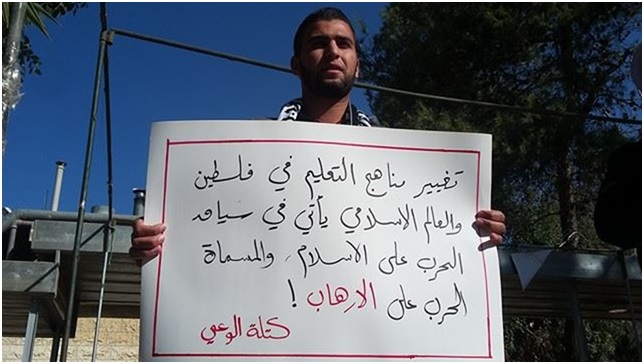 تغيير مناهج التعليم في فلسطين
والعالم الاسلامي يأتي في سياق
الحرب على الاسلام، والمسماة
الحرب على الارهاب !
كتلة الوعي